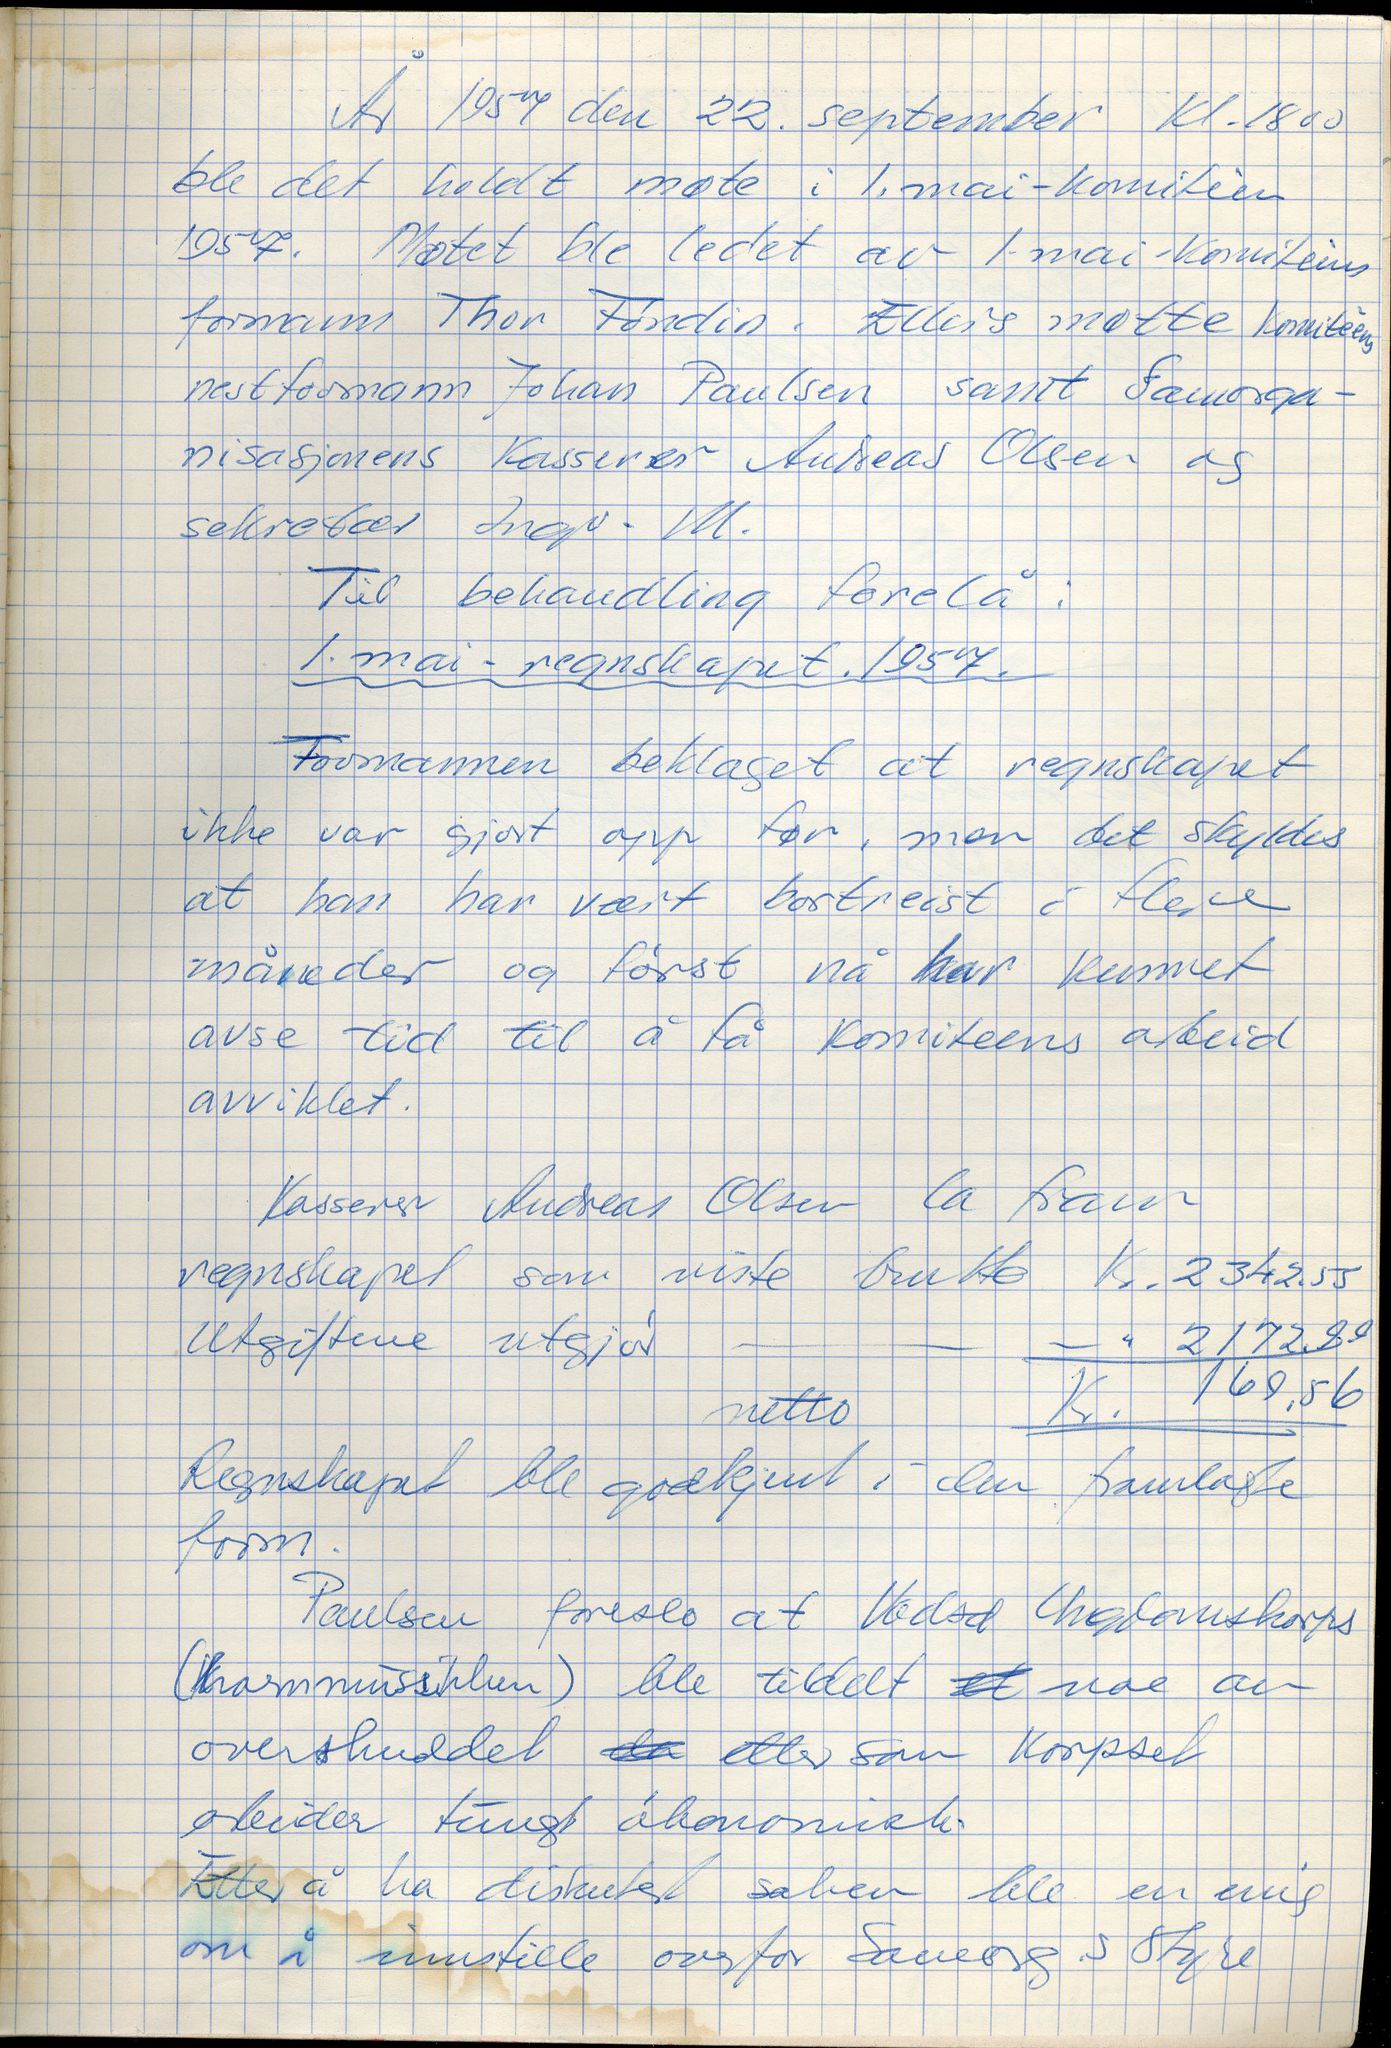 År 1957 den 22. september kl. 1800
ble det holdt møte i 1. mai-komiteen
1957. Møtet ble ledet av 1. mai-komiteens
formann Thor Fondin. Ellers møtte komiteens
nestformann Johan Paulsen samt Samorga-
nisasjonens kasserer Andreas Olsen og
sekretær Ingv. M.
Til behandling forelå:
1. mai-regnskapet. 1957.
Formannen beklaget at regnskapet
ikke var gjort opp før, men det skyldes
at han har vært bortreist i flere
måneder og först nå har kunnet
avse tid til å få komiteens arbeid
avviklet.
Kasserer Andreas Olsen la fram
regnskapet som viste brutto Kr. 2342.55
Utgiftene utgjör — — — " 2172.99
netto Kr. 169,56
Regnskapet ble godkjent i den framlagte
form.
Paulsen foreslo at Vadsø Ungdomskorps
(Hornmusikken) ble tildelt et noe av
overskuddet da etter som korpset
arbeider tungt økonomisk.
Etter å ha diskutert saken ble en enig
om å innstille overfor Samorg.s Styre